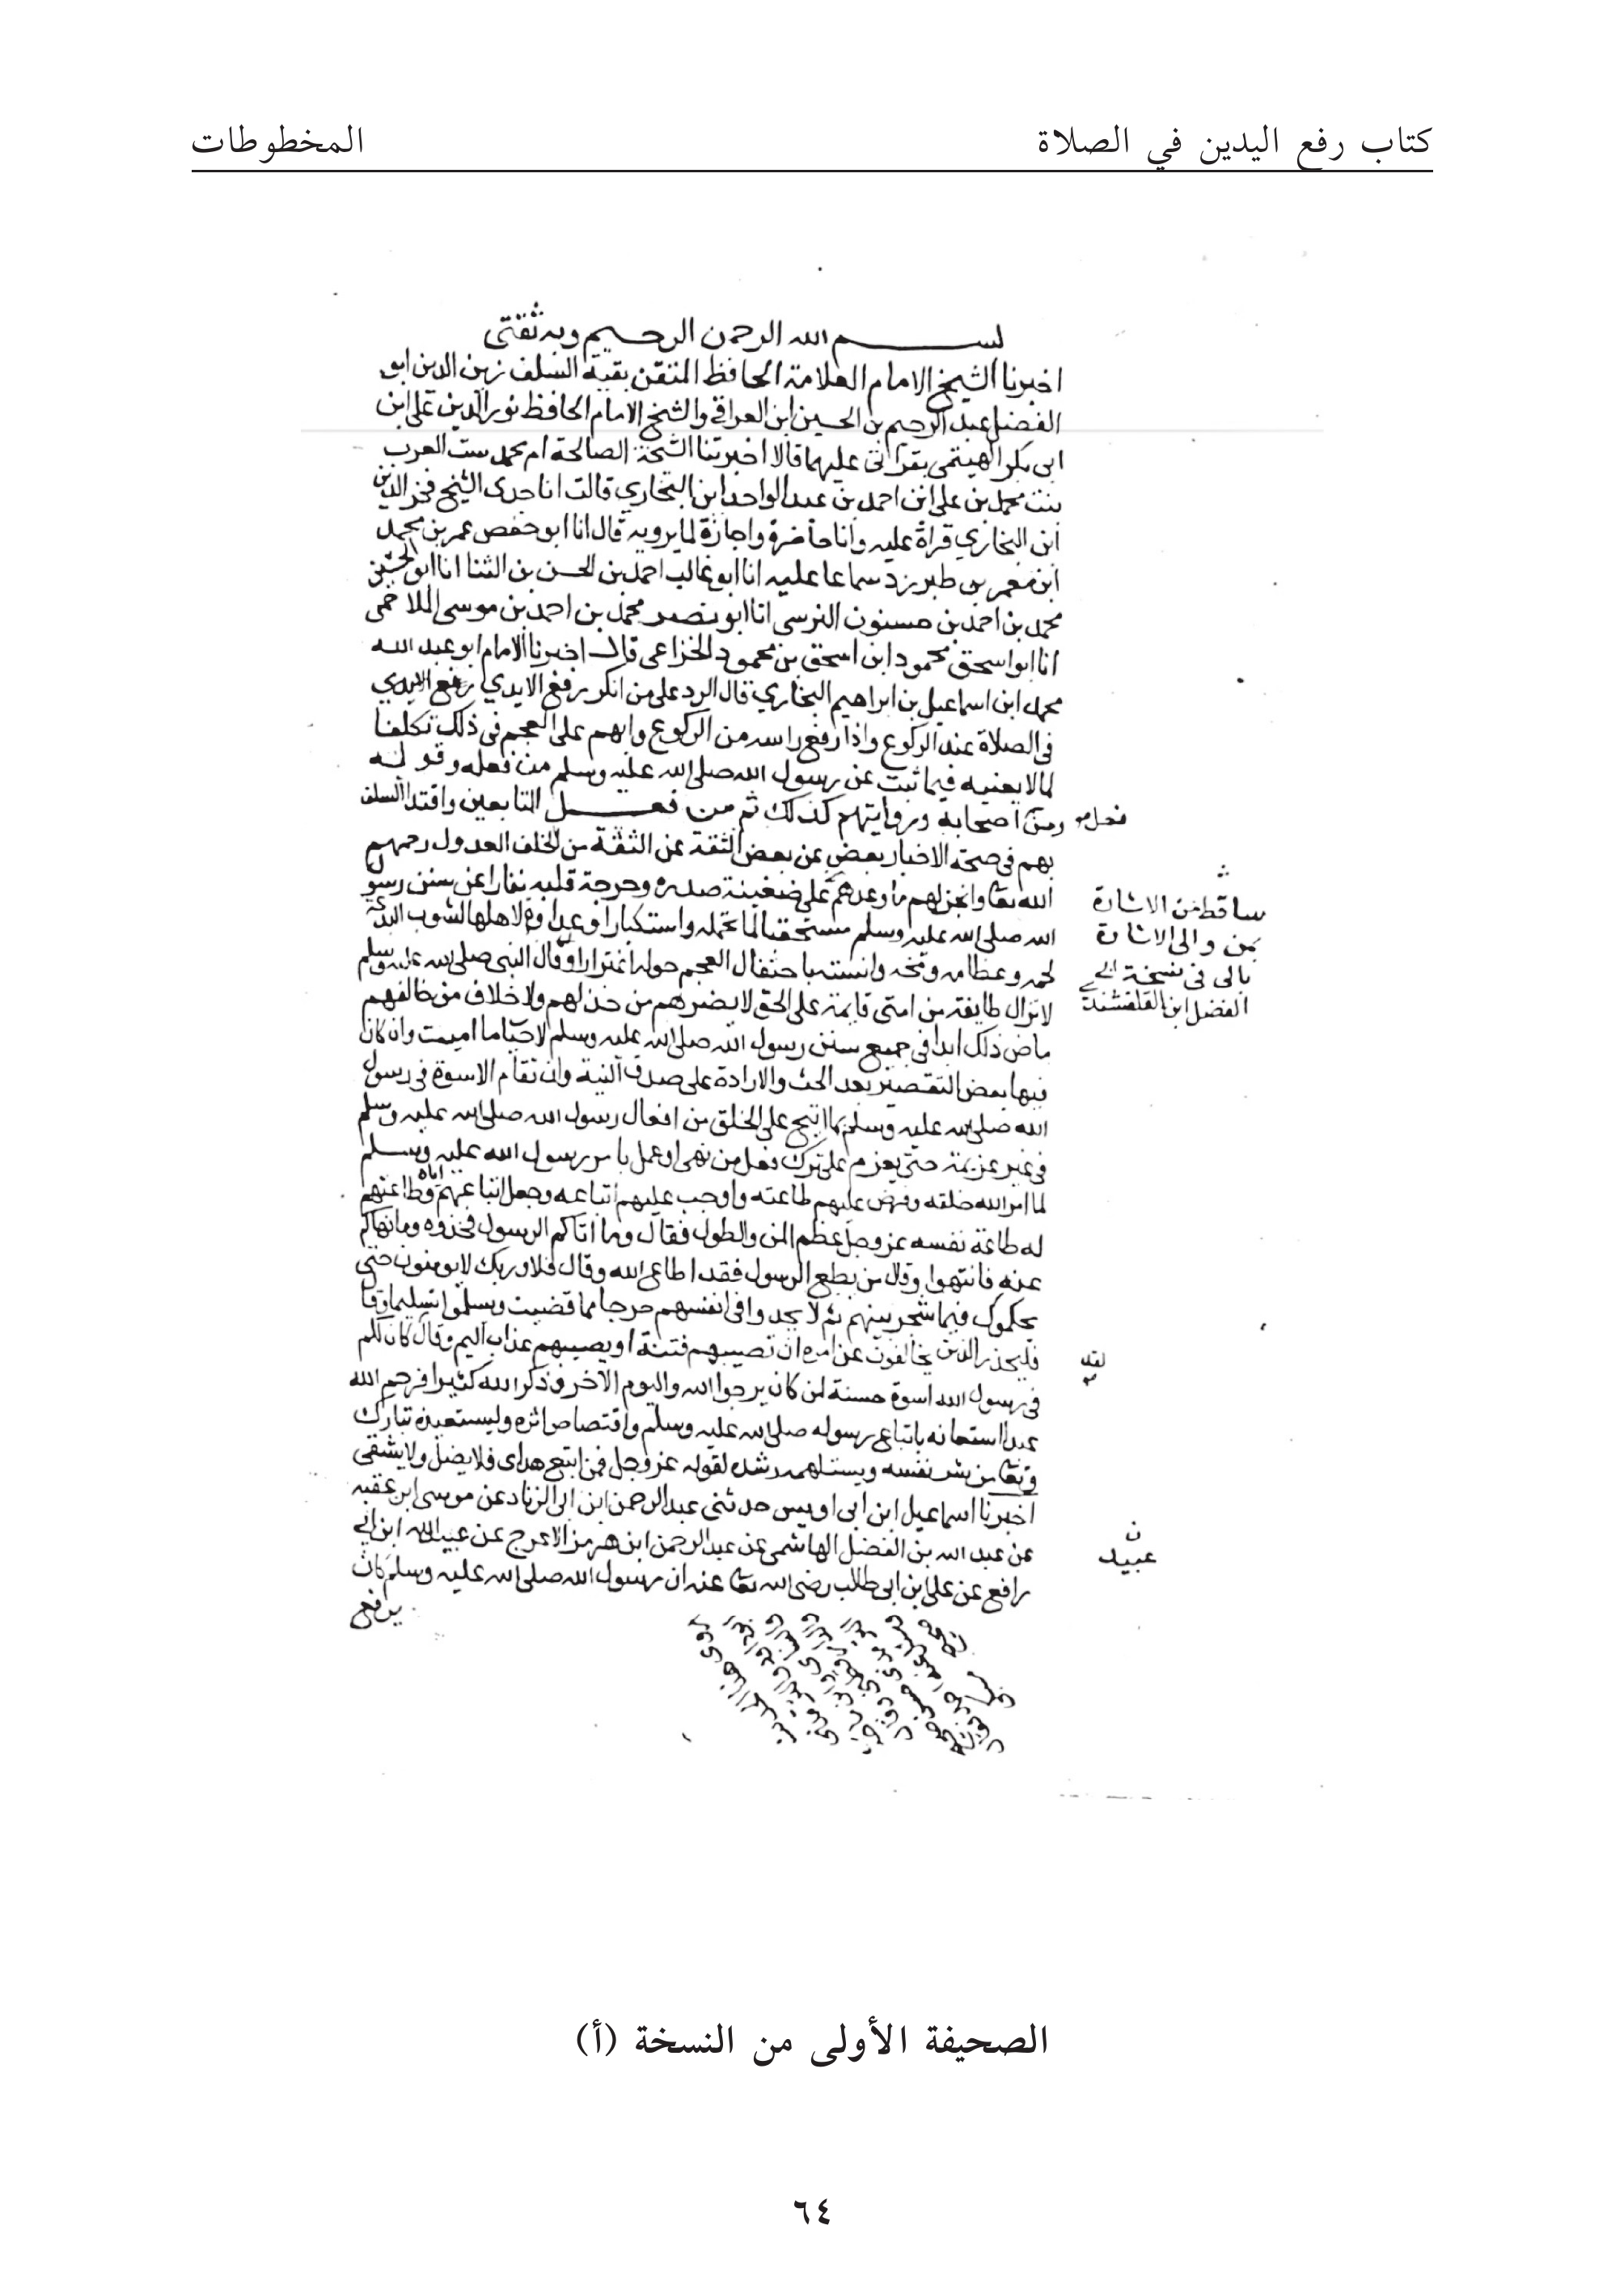 كتاب رفع اليدين في الصلاة
المخطوطات
بسم الله الرحمن الرحيم وبه ثقتي
اخبرنا الشيخ الامام العلامة الحافظ المتقن بقية السلف زين الدين ابو
الفضل عبد الرحيم بن الحسين ابن العراقي والشيخ الامام الحافظ نور الدين علي ابن
ابي بكر الهيثمي بقراتي عليهما قالا اخبرتنا الشيخة الصالحة ام محمد ست العرب
بنت محمد بن علي ابن احمد بن عبد الواحد ابن البخاري قالت انا جدي الشيخ فخر الدين
ابن البخاري قراة عليه وانا حاضرة واجازة لما يرويه قال انا ابو حفص عمر بن محمد
ابن معمر بن طبرزد سماعا عليه انا ابو غالب احمد بن الحسن بن البنا انا ابو الحسين
محمد بن احمد بن حسنون النرسي انا ابو نصر محمد بن احمد بن موسى الملاحمي
انا ابو اسحق محمود ابن اسحق بن محمود الخزاعي قال اخبرنا الامام ابو عبد الله
محمد ابن اسماعيل بن ابراهيم البخاري قال الرد على من انكر رفع الايدي
في الصلاة عند الركوع واذا رفع راسه من الركوع وابهم على العجم في ذلك تكلفا
لما لا يعنيه فيما ثبت عن رسول الله صلى الله عليه وسلم من فعله وقوله
ومن اصحابه وروايتهم كذلك ثم من فعل التابعين واقتدا السلف
فعل
بهم في صحة الاخبار بعض عن بعض الثقة عن الثقة من الخلف العدول رحمهم
الله تعا وانجز لهم ما وعدهم على ضغينة صدره وحرجة قلبه نفارا عن سنن رسول
الله صلى الله عليه وسلم مستحقا لما تحمله واستكبارا وعداوة لاهلها لشوب البدعة
لحمه وعظامه ومخه وانسته باحتفال العجم حوله اغترارا وقال النبي صلى الله عليه وسلم
ساقط من الاشارة
بمن والى الاشارة
بالى في نسخة ابي
الفضل ابن القلقشندي
لا تزال طايفة من امتي قايمة على الحق لا يضرهم من خذلهم ولا خلاف من خالفهم
ماض ذلك ابدا في جميع سنن رسول الله صلى الله عليه وسلم لاحيا ما اميت وان كان
فيها بعض التقصير بعد الحث والارادة على صدق النية وان تقام الاسوة في رسول
الله صلى الله عليه وسلم بما ابيح على الخلق من افعال رسول الله صلى الله عليه وسلم
في غير عزيمة حتى يعزم على ترك فعل من نهى او عمل بامر رسول الله عليه وسلم
لما امر الله خلقه وفرض عليهم طاعته واوجب عليهم اتباعه وجعل اتباعهم اياه وطاعتهم
له طاعة نفسه عز وجل عظم المن والطول فقال وما اتاكم الرسول فخذوه وما نهاكم
عنه فانتهوا وقال من يطع الرسول فقد اطاع الله وقال فلا وربك لا يومنون حتى
يحكموك فيما شجر بينهم ثم لا يجدوا في انفسهم حرجا مما قضيت ويسلموا تسليما وقا
فليحذر الذين يخالفون عن امره ان تصيبهم فتنة او يصيبهم عذاب اليم وقال كان لكم
لقد
في رسول الله اسوة حسنة لمن كان يرجوا الله واليوم الاخر وذكر الله كثيرا فرحم الله
عبدا استعانه باتباع رسوله صلى الله عليه وسلم واقتصاص اثره وليستعيذه تبارك
وتعا من شر نفسه ويستلهمه رشده لقوله عز وجل فمن اتبع هداي فلا يضل ولا يشقى
اخبرنا اسماعيل ابن ابي اويس حدثني عبد الرحمن ابن ابي الزناد عن موسى ابن عقبه
عن عبد الله بن الفضل الهاشمي عن عبد الرحمن ابن هرمز الاعرج عن عبيد الله ابن ابي
ن
عبيد
رافع عن علي ابن ابي طالب رضي الله تعا عنه ان رسول الله صلى الله عليه وسلم كان
يرفع
الصحيفة الأولى من النسخة (أ)
٦٤